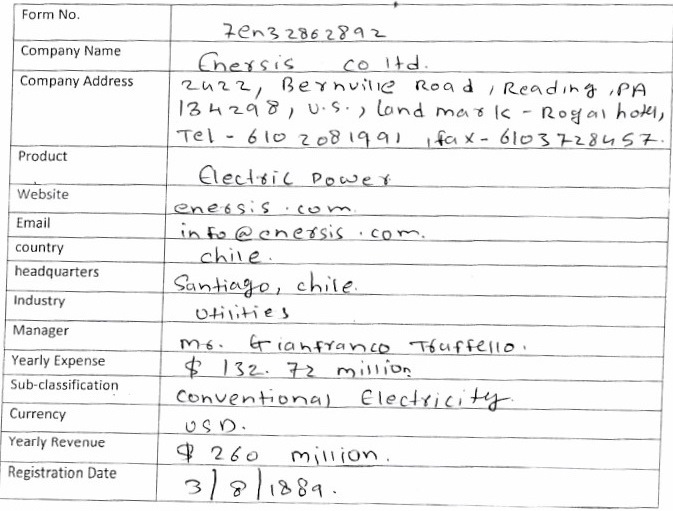 Form No.
7en32862892
Company Name
Enersis co ltd.
Company Address
2422, Bernville Road, Reading, PA
134298, U.S., land mark - Royal hotel,
Tel - 610 2081991, fax - 6103728457.
Product
Electric Power
Website
enersis.com
Email
info@enersis.com.
country
chile.
headquarters
Santiago, chile.
Industry
Utilities
Manager
Mr. Gianfranco Truffello.
Yearly Expense
$ 132.72 million
Sub-classification
Conventional Electricity.
Currency
USD.
Yearly Revenue
$ 260 million.
Registration Date
3/8/1889.